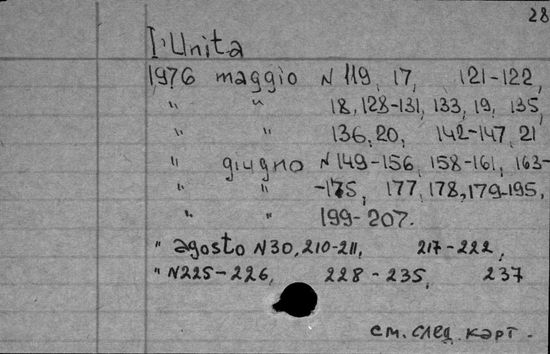 28
L'Unita
1976 maggio N 119, 17, 121-122,
" " 18, 128-131, 133, 19, 135,
" " 136, 20, 142-147, 21
" giugno N 149-156, 158-161, 163-
" " -175, 177, 178, 179-195,
" " 199-207.
" agosto N 30, 210-211, 217-222,
" N 225-226, 228-235, 237
см. след. карт.